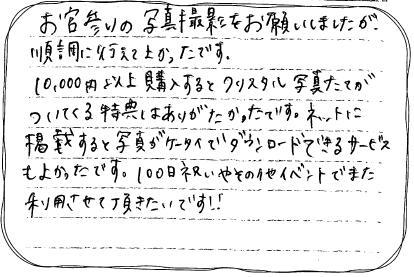 お宮参りの写真撮影をお願いしましたが、
順調に行えて上かったです。
10,000円以上購入するとクリスタル写真たてが
ついてくる特典はありがたかったです。ネットに
掲載すると写真がケータイでダウンロードできるサービス
もよかったです。100日祝いやその他イベントでまた
利用させて頂きたいです!!